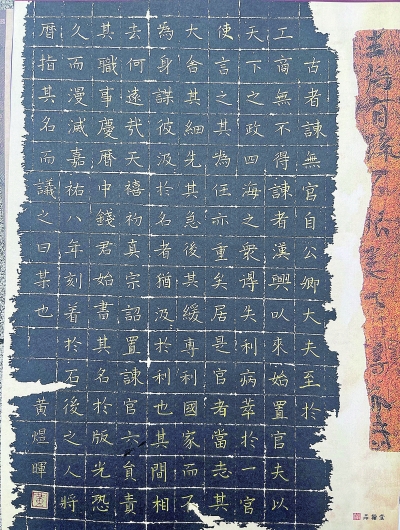 古者諫無官自公卿大夫至於
工商無不得諫者漢興以來始置官夫以
天下之政四海之衆得失利病萃於一官
使言之其為任亦重矣居是官者當志其
大舍其細先其急後其緩專利國家而不
為身謀彼汲於名者猶汲於利也其間相
去何遠哉天禧初真宗詔置諫官六員責
其職事慶曆中錢君始書其名於版光恐
久而漫滅嘉祐八年刻着於石後之人將
曆指其名而議之曰某也 黃煜暉